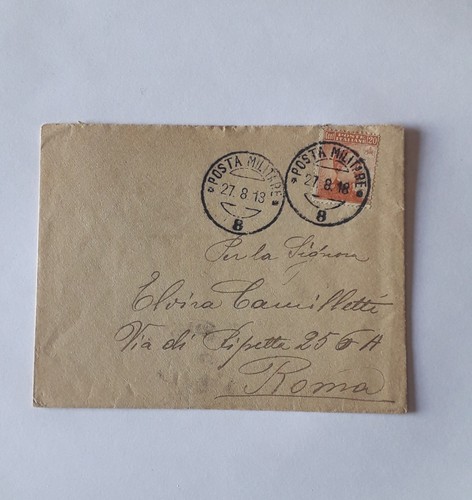 POSTA MILITARE
27.8.18
8
POSTA MILITARE
27.8.18
8
20
Per la Signora
Elvira Camilletti
Via di Ripetta 256 A
Roma